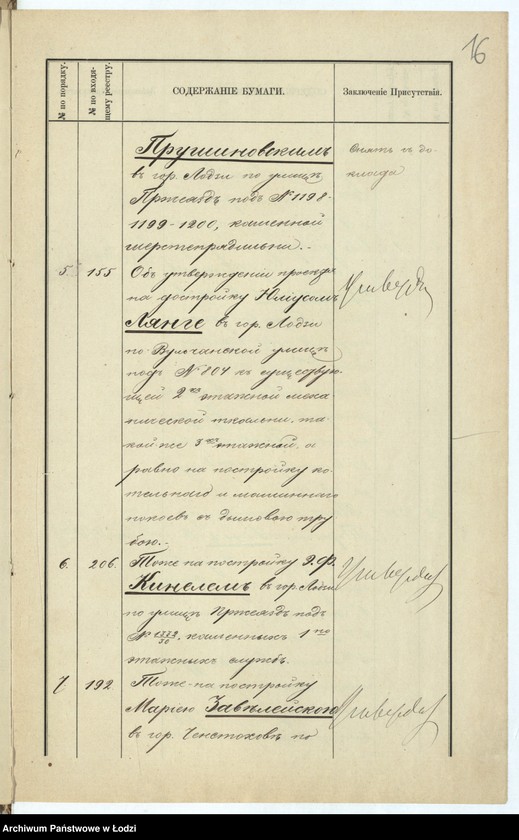 16
№ по порядку.
№ по входя-
щему реестру.
СОДЕРЖАНІЕ БУМАГИ.
Заключеніе Присутствія.
Прушиновскимъ
въ гор. Лодзи по улицѣ
Пржеяздъ подъ № 1198-
1199-1200, каменной
шерстепрядильни.-
Снять съ до-
клада
5. 155 Объ утвержденіи проекта
на достройку Юліусомъ
Лянге въ гор. Лодзи
по Вульчанской улицѣ
подъ № 804 къ существую-
щей 2хъ этажной меха
нической ткальни, та
кой-же 3хъ этажной, а
равно на постройку ко-
тельнаго и машиннаго
покоевъ съ дымовою тру
бою.-
Утвердить
6. 206. Тоже на постройку Э. Ф.
Кинелемъ въ гор. Лодзи
по улицѣ Пржеяздъ подъ
№ каменныхъ 1но
этажныхъ службъ.
Утвердить
7 192 Тоже на постройку
Маріею Завѣлейского
въ гор. Ченстоховѣ по
Утвердить
Archiwum Państwowe w Łodzi